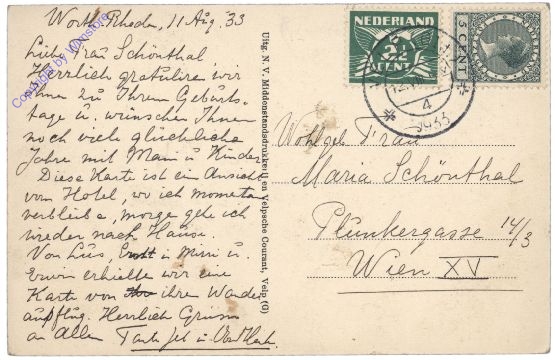 Worth-Rheden, 11 Aug. 33
Liebe Frau Schönthal
Herzlich gratuliere wir
Ihnen zu Ihrem Geburts-
tage u. wünschen Ihnen
noch viele glückliche
Jahre mit Mann u. Kinder
Diese Karte ist ein Ansicht
vom Hotel, wo ich momentan
verbleibe, morge gehe ich
wieder nach Hause.
Von Luis, u. Mimi u.
Erwin erhielte wir eine
Karte von ihre Wander
ausflug. Herzlich Grüsse
an Allen Tante u.
Copyright by Wimstore
Uitg. N. V. Middenstandsdrukkerij en Velpsche Courant, Velp (G)
NEDERLAND
2½
CENT
5 CENT
4
1933
Wohlgeb. Frau
Maria Schönthal
Plunkergasse 14/3
Wien XV